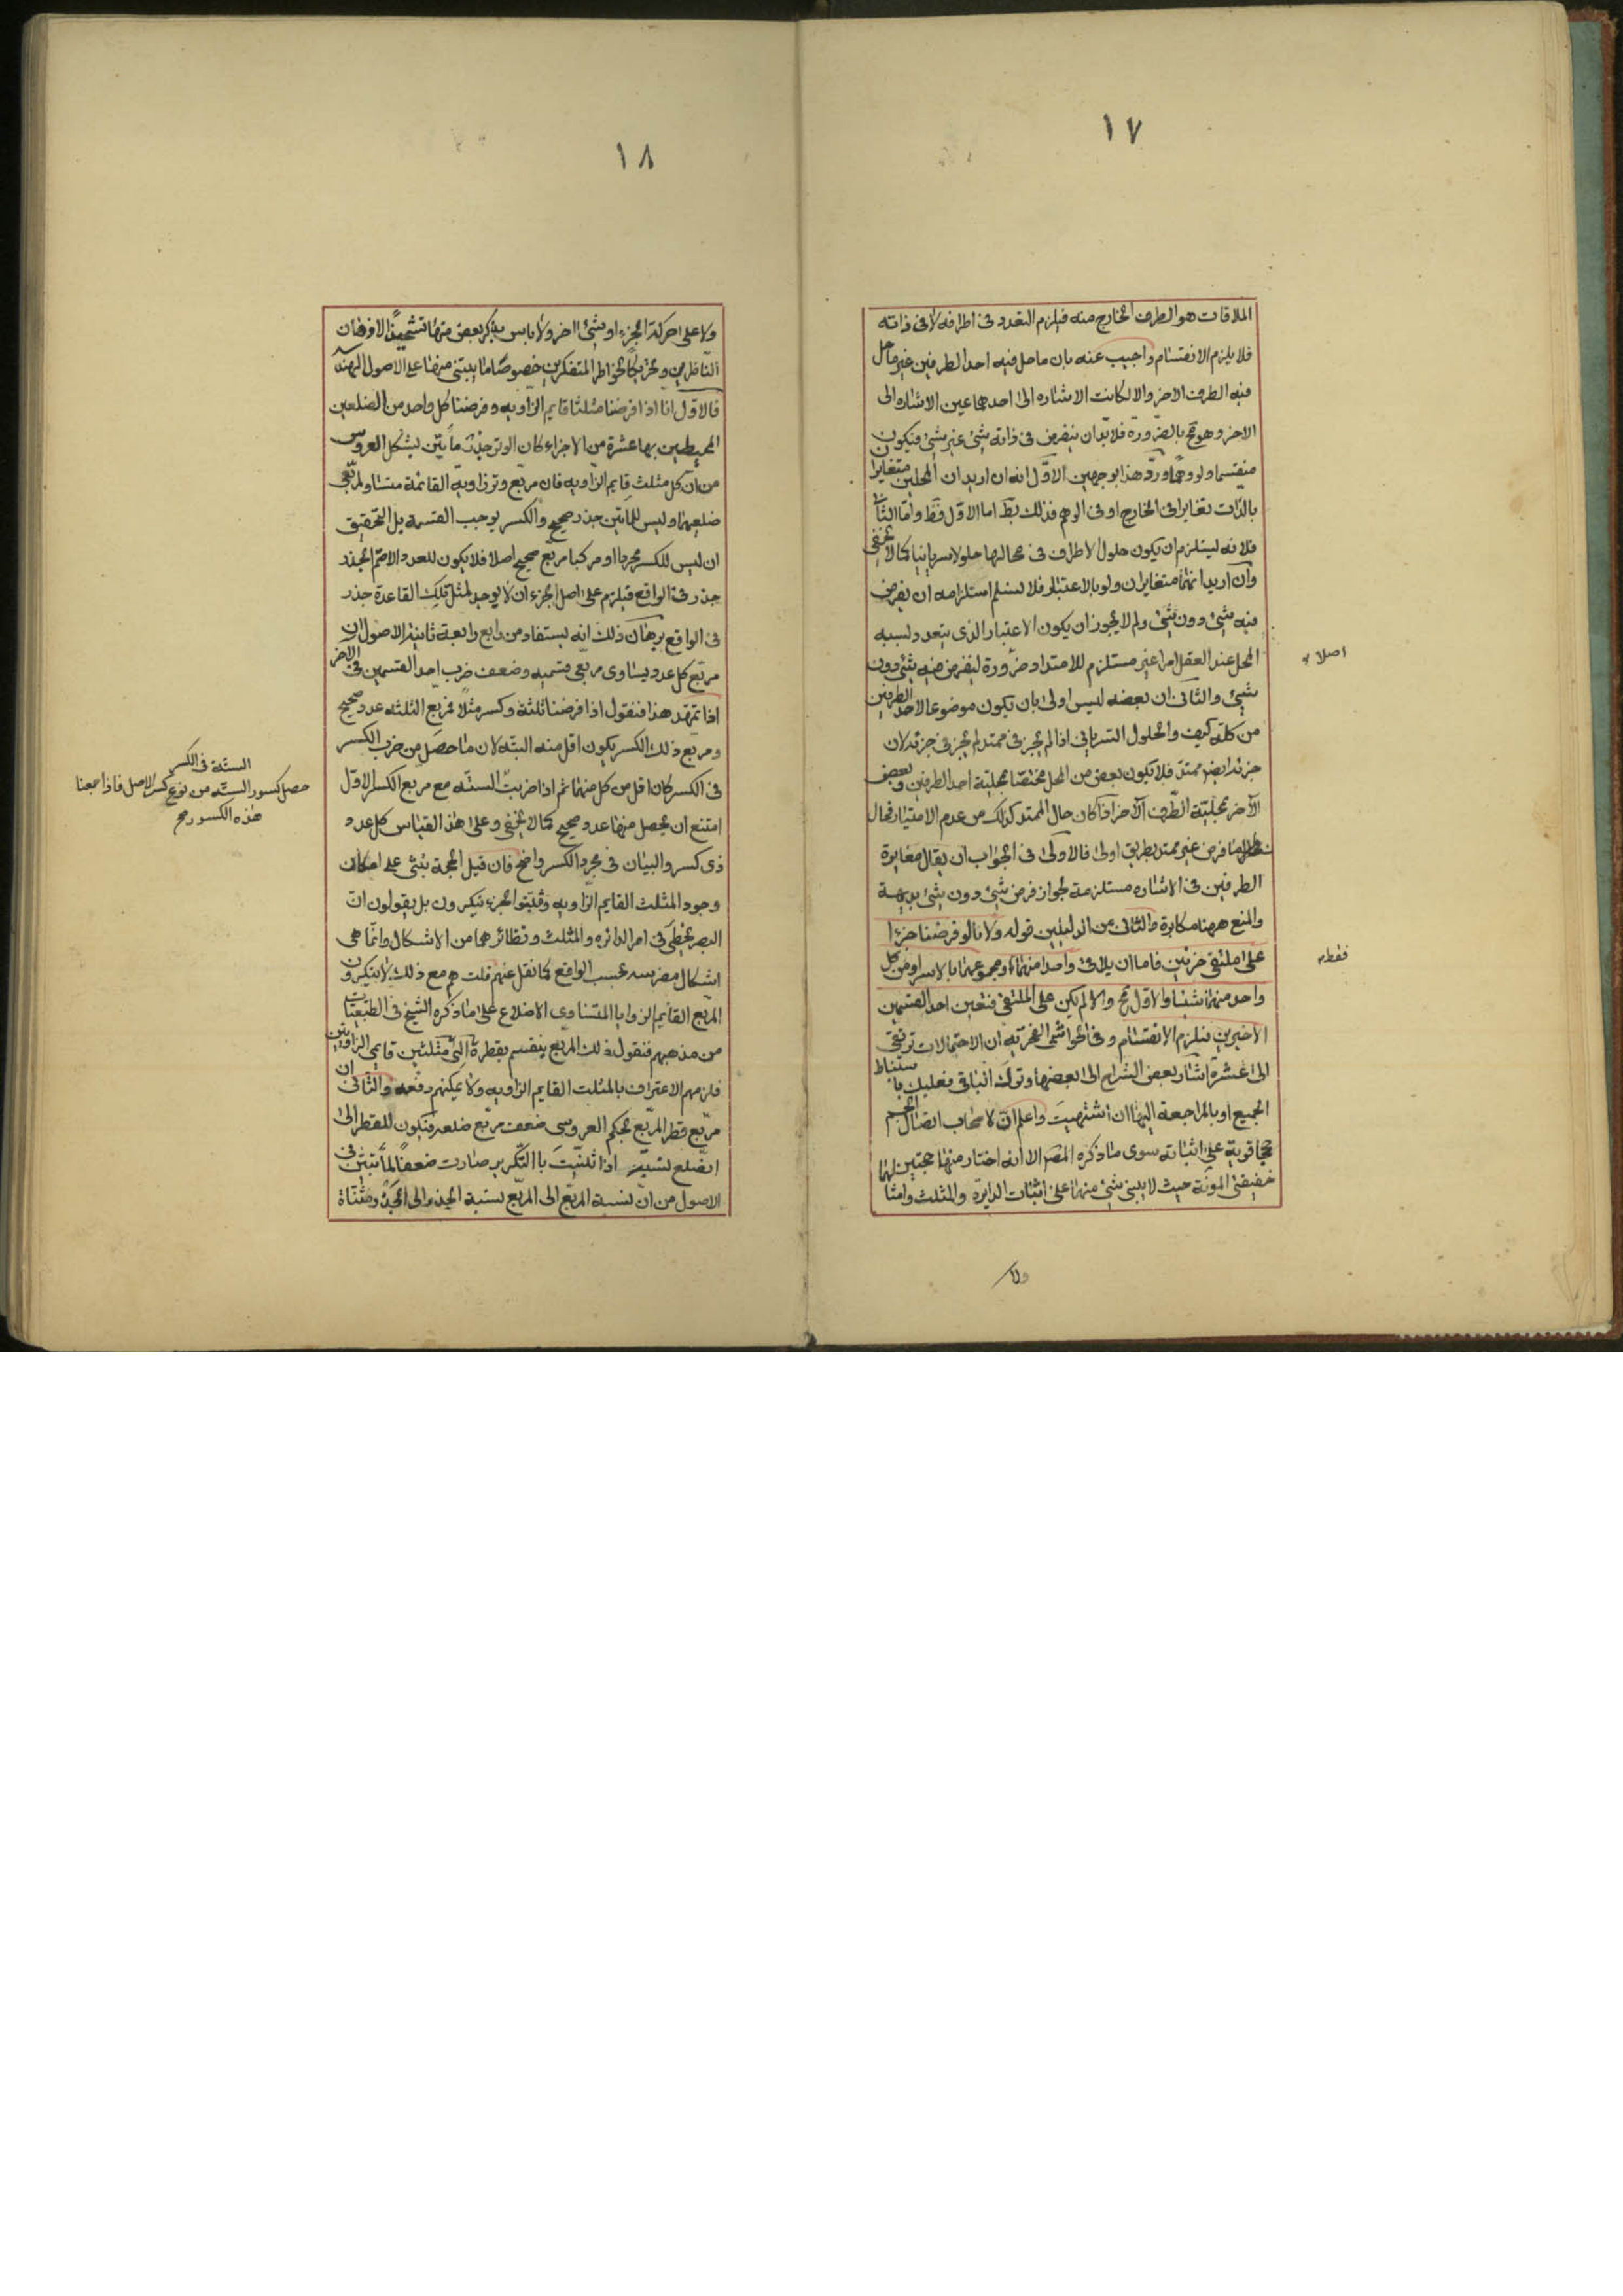 ١٧
الملاقات هو الطرف الخارج منه فيلزم التعدد فى اطرافه لا فى ذاته
فلا يلزم الانقسام واجيب عنه بان ما حل فيه احد الطرفين غير ما حل
فيه الطرف الاخر والا لكانت الاشاره الى احدهما عين الاشاره الى
الاخر وهو مح بالضرورة فلا بد ان يفرض فى ذاته شئ غير شئ فيكون
منقسما ولو وهما ورد هذا بوجهين الاول انه ان اريد ان المحلين متغايرا
بالذات تغايرا فى الخارج او فى الوهم فذلك بط اما الاول فظ واما الثانى
فلانه ليستلزم ان يكون حلول الاطراف فى محالها حلولا سريانيا كما لا يخفى
وان اريد انهما متغايران ولو بالاعتبار فلا نسلم استلزامه ان يفرض
فيه شئ دون شئ ولم لا يجوز ان يكون الاعتبار الذى يتعدد لسببه
المحل عند العقل امرا غير مستلزم للامتداد ضرورة ليفرض فيه شئ دون
اصلا
شئ والثانى ان بعضه ليس اولى بان يكون موضوعا لاحد الطرفين
من كله كيف والحلول السريانى اذا لم يجز فى ممتد لم يجز فى جزئه لان
جزئه ايضا ممتد فلا يكون بعض من المحل مختصا بمحلية احد الطرفين وبعض
الآخر بمحلية الطرف الآخر اذا كان حال الممتد كذلك من عدم الامتياز فحال
ما فرض غير ممتد بطريق اولى فالاولى فى الجواب ان يقال مغايرة
الطرفين فى الاشاره مستلزمة لجواز فرض شئ دون شئ بديهة
والمنع ههنا مكابرة والثانى من الدليلين قوله ولانا لو فرضنا جزءا
على ملتقى جزئين فاما ان يلاقى واحدا منهما او مجموعهما بالاسر او من كل
فقط
واحد منهما شيئا والاول مح والا لم يكن على الملتقى فتعين احد القسمين
الاخيرين فيلزم الانقسام وفى الحواشى الفخرية ان الاحتمالات ترتقى
الى عشرة اشار بعض الشراح الى بعضها وترك الباقى فعليك باستنباط
الجميع او بالمراجعة اليها ان اشتهيت واعلم ان لاصحاب اتصال الجسم
حججا قوية على اثباته سوى ما ذكره المص الا انه اختار منها حجتين لهما
خفيفتى المونة حيث لا يبنى شئ منهما على اثبات الدايرة والمثلث وامثا
ولا
١٨
ولا على حركة الجزء او شئ اخر ولا باس بذكر بعض منها تشحيذا لاذهان
الناظرين وتحريكا لخواطر المتفكرين خصوصا ما يبتنى منها على الاصول الهندسه
فالاول انا اذا فرضنا مثلثا قايم الزاويه وفرضنا كل واحد من الضلعين
المحيطين بها عشرة من الاجزاء كان الوتر جذر مأتين بشكل العروس
من ان كل مثلث قايم الزاويه فان مربع وتر زاويه القائمة متساو لمربعى
ضلعيها وليس للماتين جذر صحيح والكسر يوجب القسمه بل التحقيق
ان ليس للكسر مجردا او مركبا مربع صحيح اصلا فلا يكون للعدد الاصم الجذر
جذر فى الواقع فيلزم على اصل الجزء ان لا يوجد لمثل تلك القاعدة جذر
فى الواقع برهان ذلك انه يستفاد من رابع رابعة ثانية الاصول ان
مربع كل عدد يساوى مربعى قسميه وضعف ضرب احد القسمين فى الآخر
اذا تمهد هذا فنقول اذا فرضنا ثلثة وكسر مثلا فمربع الثلثه عدد صحيح
ومربع ذلك الكسر يكون اقل منه البته لان ما حصل من ضرب الكسر
فى الكسر كان اقل من كل منهما ثم اذا ضربت الستّه مع مربع الكسر الاول
الستّة فى الكسر
حصل كسور الستّه من نوع كسر الاصل فاذا جمعنا
هذه الكسور صح
امتنع ان يحصل منها عدد صحيح كما لا يخفى وعلى هذا القياس كل عدد
ذى كسر والبيان فى مجرد الكسر واضح فان قيل الحجة تبنى على امكان
وجود المثلث القايم الزاويه ومثبتوا الجزء ينكرون بل يقولون ان
البصر يخطى فى امر الدائره والمثلث ونظائرهما من الاشكال وانما هى
اشكال مضرسه بحسب الواقع كما نقل عنهم قلت هم مع ذلك لا ينكرون
المربع القائيم الزوايا المتساوى الاضلاع على ما ذكره الشيخ فى الطبيعيات
من مذهبهم فنقول ذلك المربع ينقسم بقطره الى مثلثين قايمى الزاويتين
فلزمهم الاعتراف بالمثلث القايم الزاويه ولا يمكنهم دفعه والثانى ان
مربع قطر المربع بحكم العروسى ضعف مربع ضلعه فتكون للقطر الى
الضلع نسبة اذا ثلثيت باالتكرير صارت ضعفا لما تبين فى
الاصول من ان نسبة المربع الى المربع نسبة الجذر الى الجذر مثناة